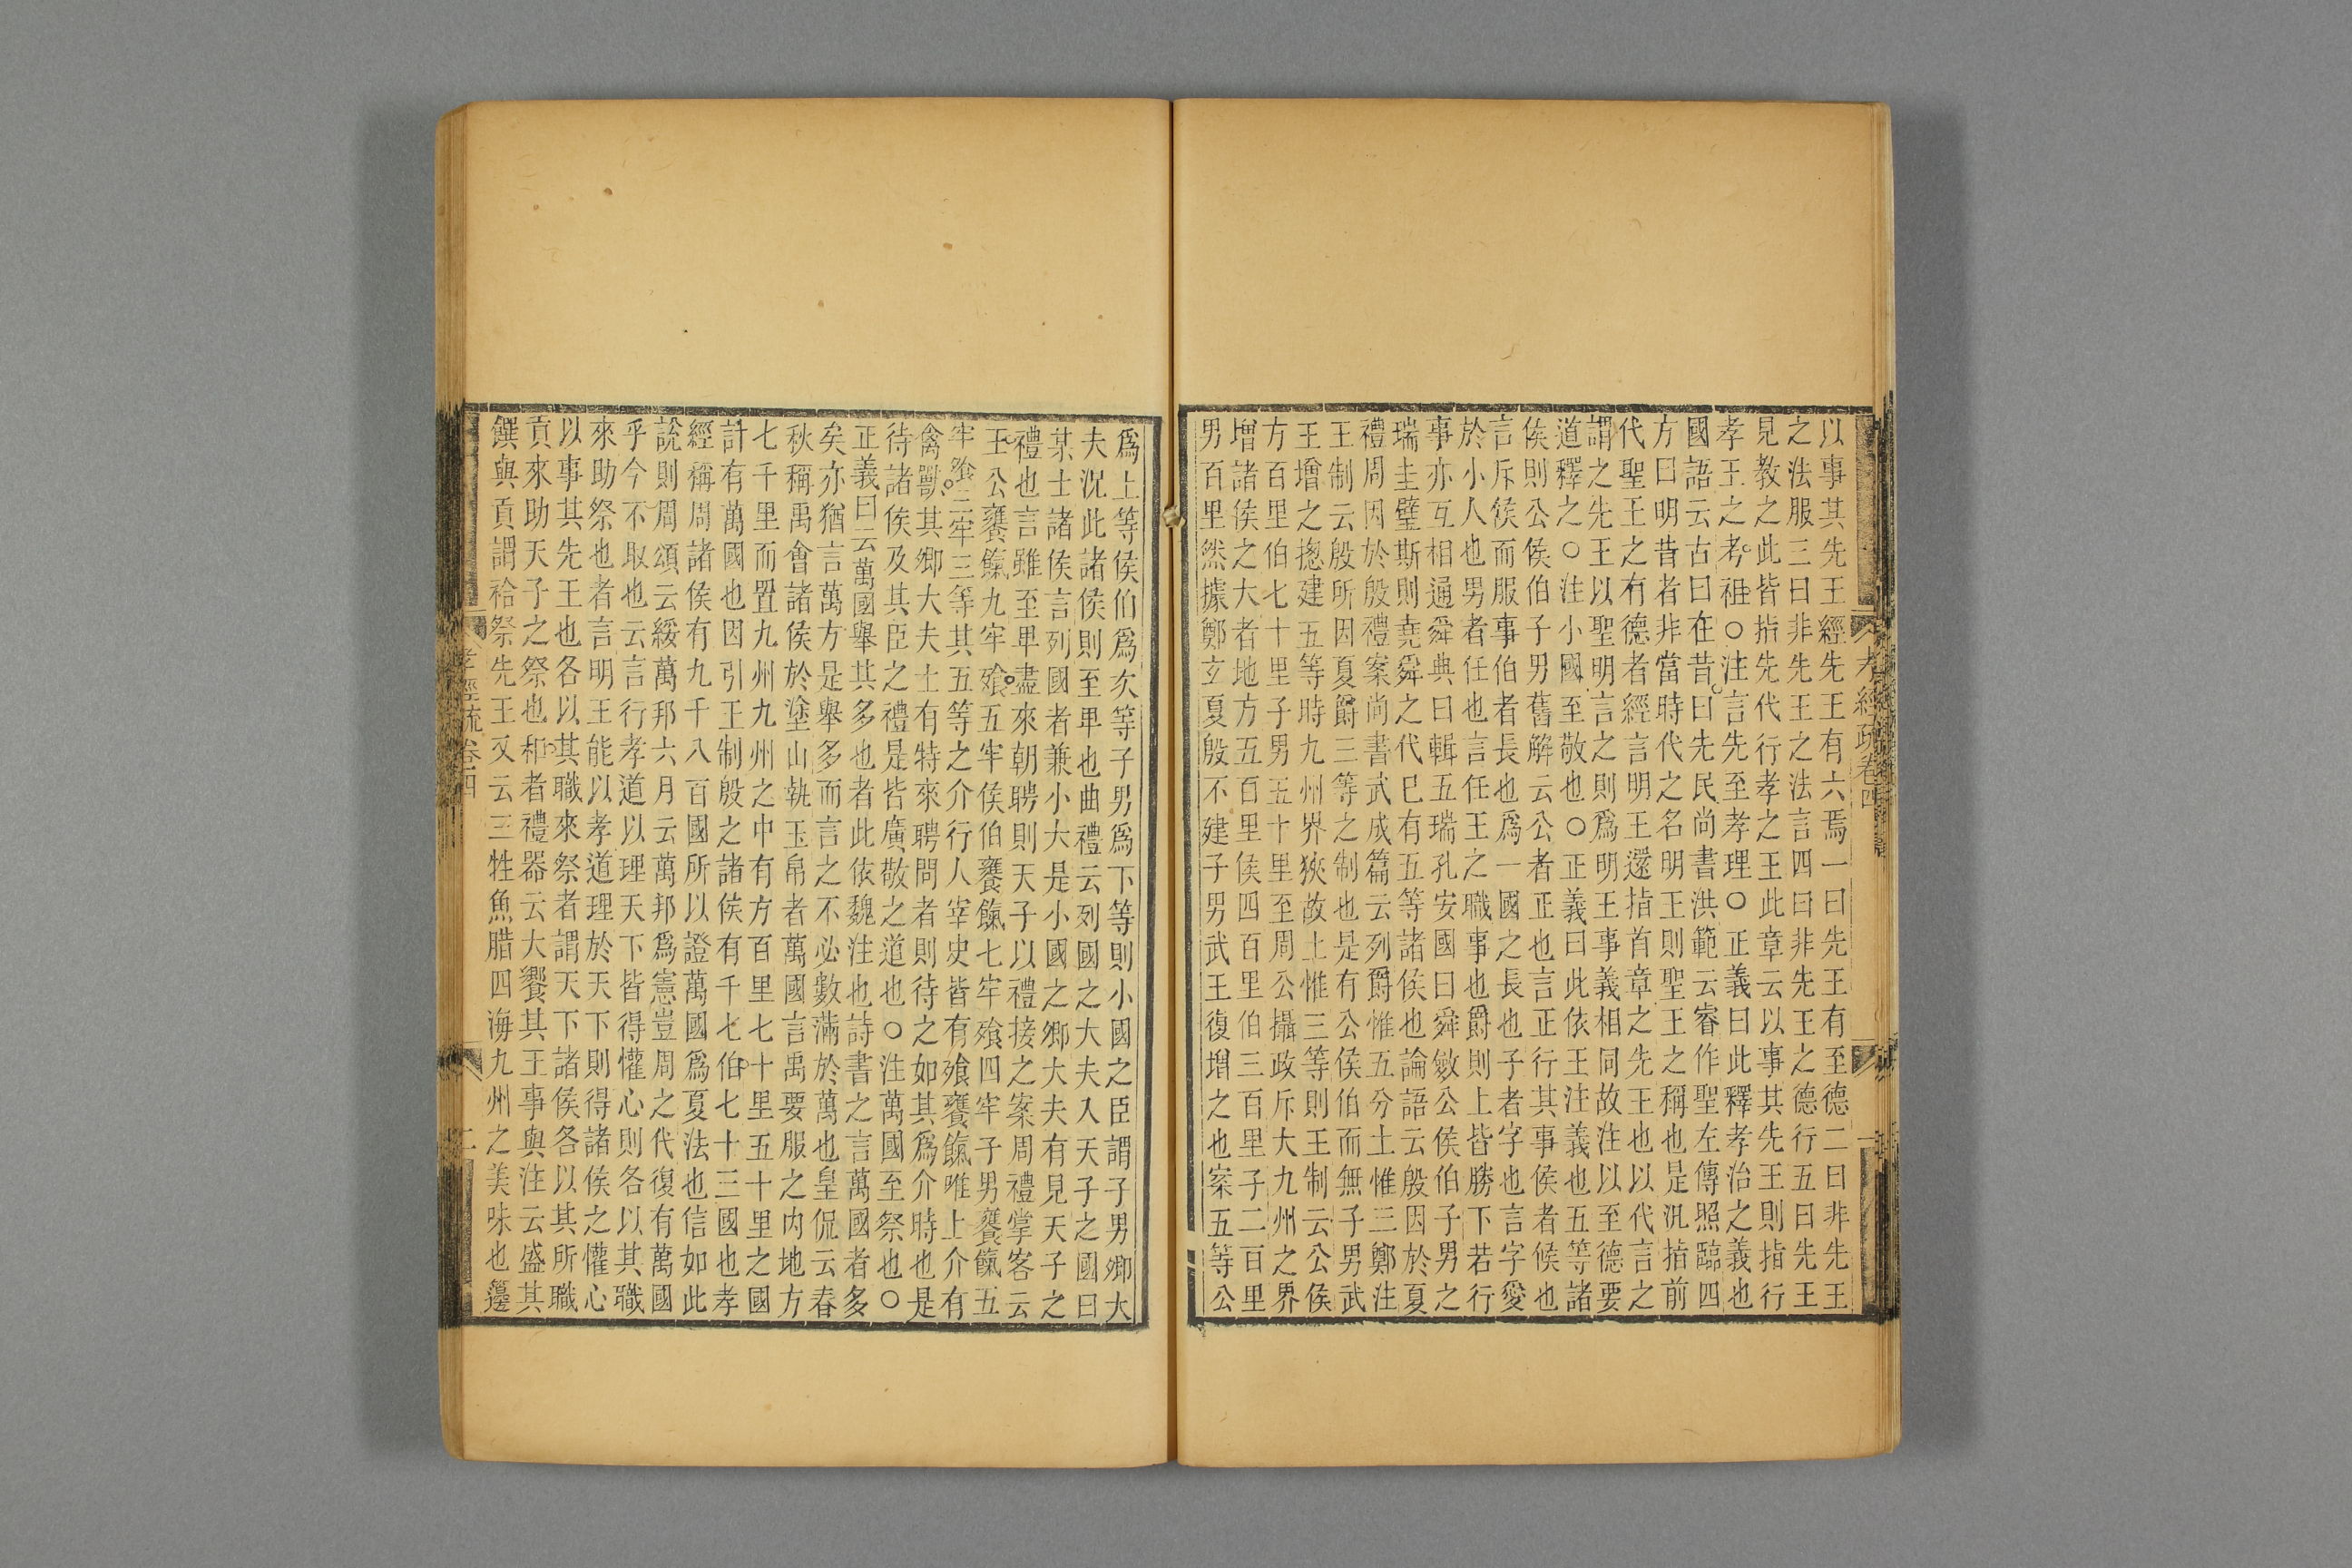 孝經疏卷四
以事其先王經先王有六焉一曰先王有至德二曰非先王
之法服三曰非先王之法言四曰非先王之德行五曰先王
見教之此皆指先代行孝之王此章云以事其先王則指行
孝王之考祖○注言先至孝理○正義曰此釋孝治之義也
國語云古曰在昔曰先民尚書洪範云睿作聖左傳照臨四
方曰明昔者非當時代之名明王則聖王之稱也是汎指前
代聖王之有德者經言明王還指首章之先王也以代言之
謂之先王以聖明言之則爲明王事義相同故注以至德要
道釋之○注小國至敬也○正義曰此依王注義也五等諸
侯則公侯伯子男舊解云公者正也言正行其事侯者候也
言斥候而服事伯者長也爲一國之長也子者字也言字愛
於小人也男者任也言任王之職事也爵則上皆勝下若行
事亦互相通舜典曰輯五瑞孔安國曰舜斂公侯伯子男之
瑞圭璧斯則堯舜之代已有五等諸侯也論語云殷因於夏
禮周因於殷禮案尚書武成篇云列爵惟五分土惟三鄭注
王制云殷所因夏爵三等之制也是有公侯伯而無子男武
王增之揔建五等時九州界狹故土惟三等則王制云公侯
方百里伯七十里子男五十里至周公攝政斥大九州之界
增諸侯之大者地方五百里侯四百里伯三百里子二百里
男百里然據鄭玄夏殷不建子男武王復增之也案五等公
爲上等侯伯爲次等子男爲下等則小國之臣謂子男卿大
夫況此諸侯則至卑也曲禮云列國之大夫入天子之國曰
某士諸侯言列國者兼小大是小國之卿大夫有見天子之
禮也言雖至卑盡來朝聘則天子以禮接之案周禮掌客云
王公饔餼九牢飧五牢侯伯饔餼七牢飧四牢子男饔餼五
牢飧三牢三等其五等之介行人宰史皆有飧饔餼唯上介有
禽獸其卿大夫士有特來聘問者則待之如其爲介時也是
待諸侯及其臣之禮是皆廣敬之道也○注萬國至祭也○
正義曰云萬國舉其多也者此依魏注也詩書之言萬國者多
矣亦猶言萬方是舉多而言之不必數滿於萬也皇侃云春
秋稱禹會諸侯於塗山執玉帛者萬國言禹要服之内地方
七千里而置九州九州之中有方百里七十里五十里之國
計有萬國也因引王制殷之諸侯有千七伯七十三國也孝
經稱周諸侯有九千八百國所以證萬國爲夏法也信如此
說則周頌云綏萬邦六月云萬邦爲憲豈周之代復有萬國
乎今不取也云言行孝道以理天下皆得懽心則各以其職
來助祭也者言明王能以孝道理於天下則得諸侯之懽心
以事其先王也各以其職來祭者謂天下諸侯各以其所職
貢來助天子之祭也和者禮器云大饗其王事與注云盛其
饌與貢謂祫祭先王又云三牲魚腊四海九州之美味也籩
孝經疏卷四
二